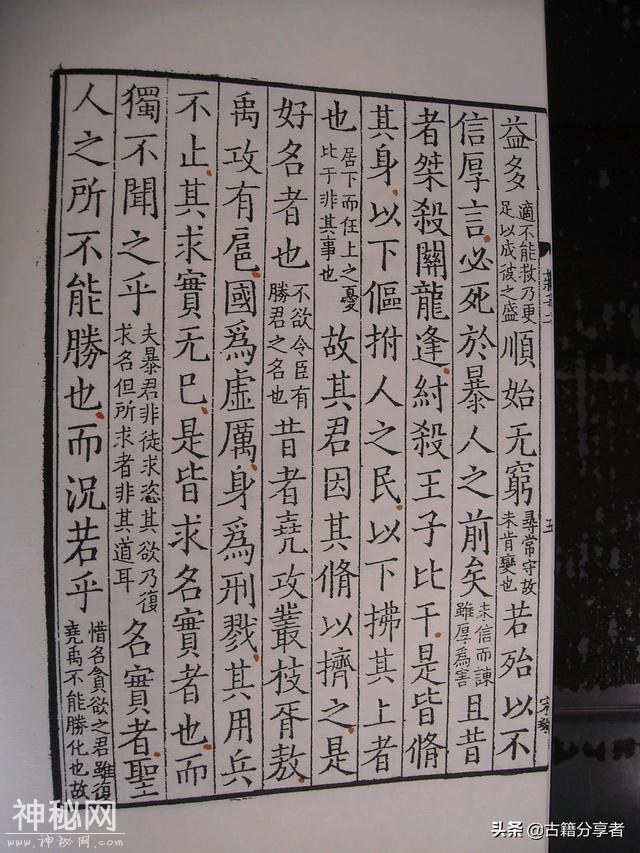 益多適不能救乃更足以成彼之盛順始无窮尋常守故未肯變也若殆以不
信厚言必死於暴人之前矣未信而諫雖厚爲害且昔
者桀殺關龍逢紂殺王子比干是皆脩
其身以下傴拊人之民以下拂其上者
也居下而任上之憂比干非其事也故其君因其脩以擠之是
好名者也不欲令臣有勝君之名也昔者堯攻叢枝胥敖
禹攻有扈國爲虛厲身爲刑戮其用兵
不止其求實无已是皆求名實者也而
獨不聞之乎夫暴君非徒求恣其欲乃復求名但所求者非其道耳名實者聖
人之所不能勝也而況若乎惜名貪欲之君雖復堯禹不能勝化也故
五
神秘网
www.神秘网.com
头条 @古籍分享者